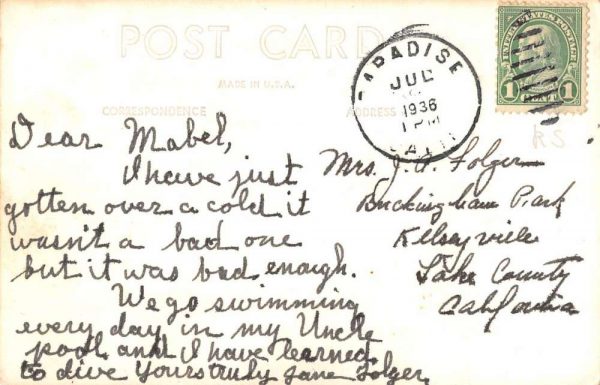 POST CARD
MADE IN U.S.A.
CORRESPONDENCE
ADDRESS
PARADISE
JUL
1936
1 PM
CALIF
UNITED STATES POSTAGE
1 CENT 1
RS
Dear Mabel,
I have just
gotten over a cold it
wasn't a bad one
but it was bad enough.
We go swimming
every day in my Uncle
pool and I have learned
to dive Yours truly Jane Folger
Mrs. J. A. Folger
Buckingham Park
Kelseyville
Lake County
California